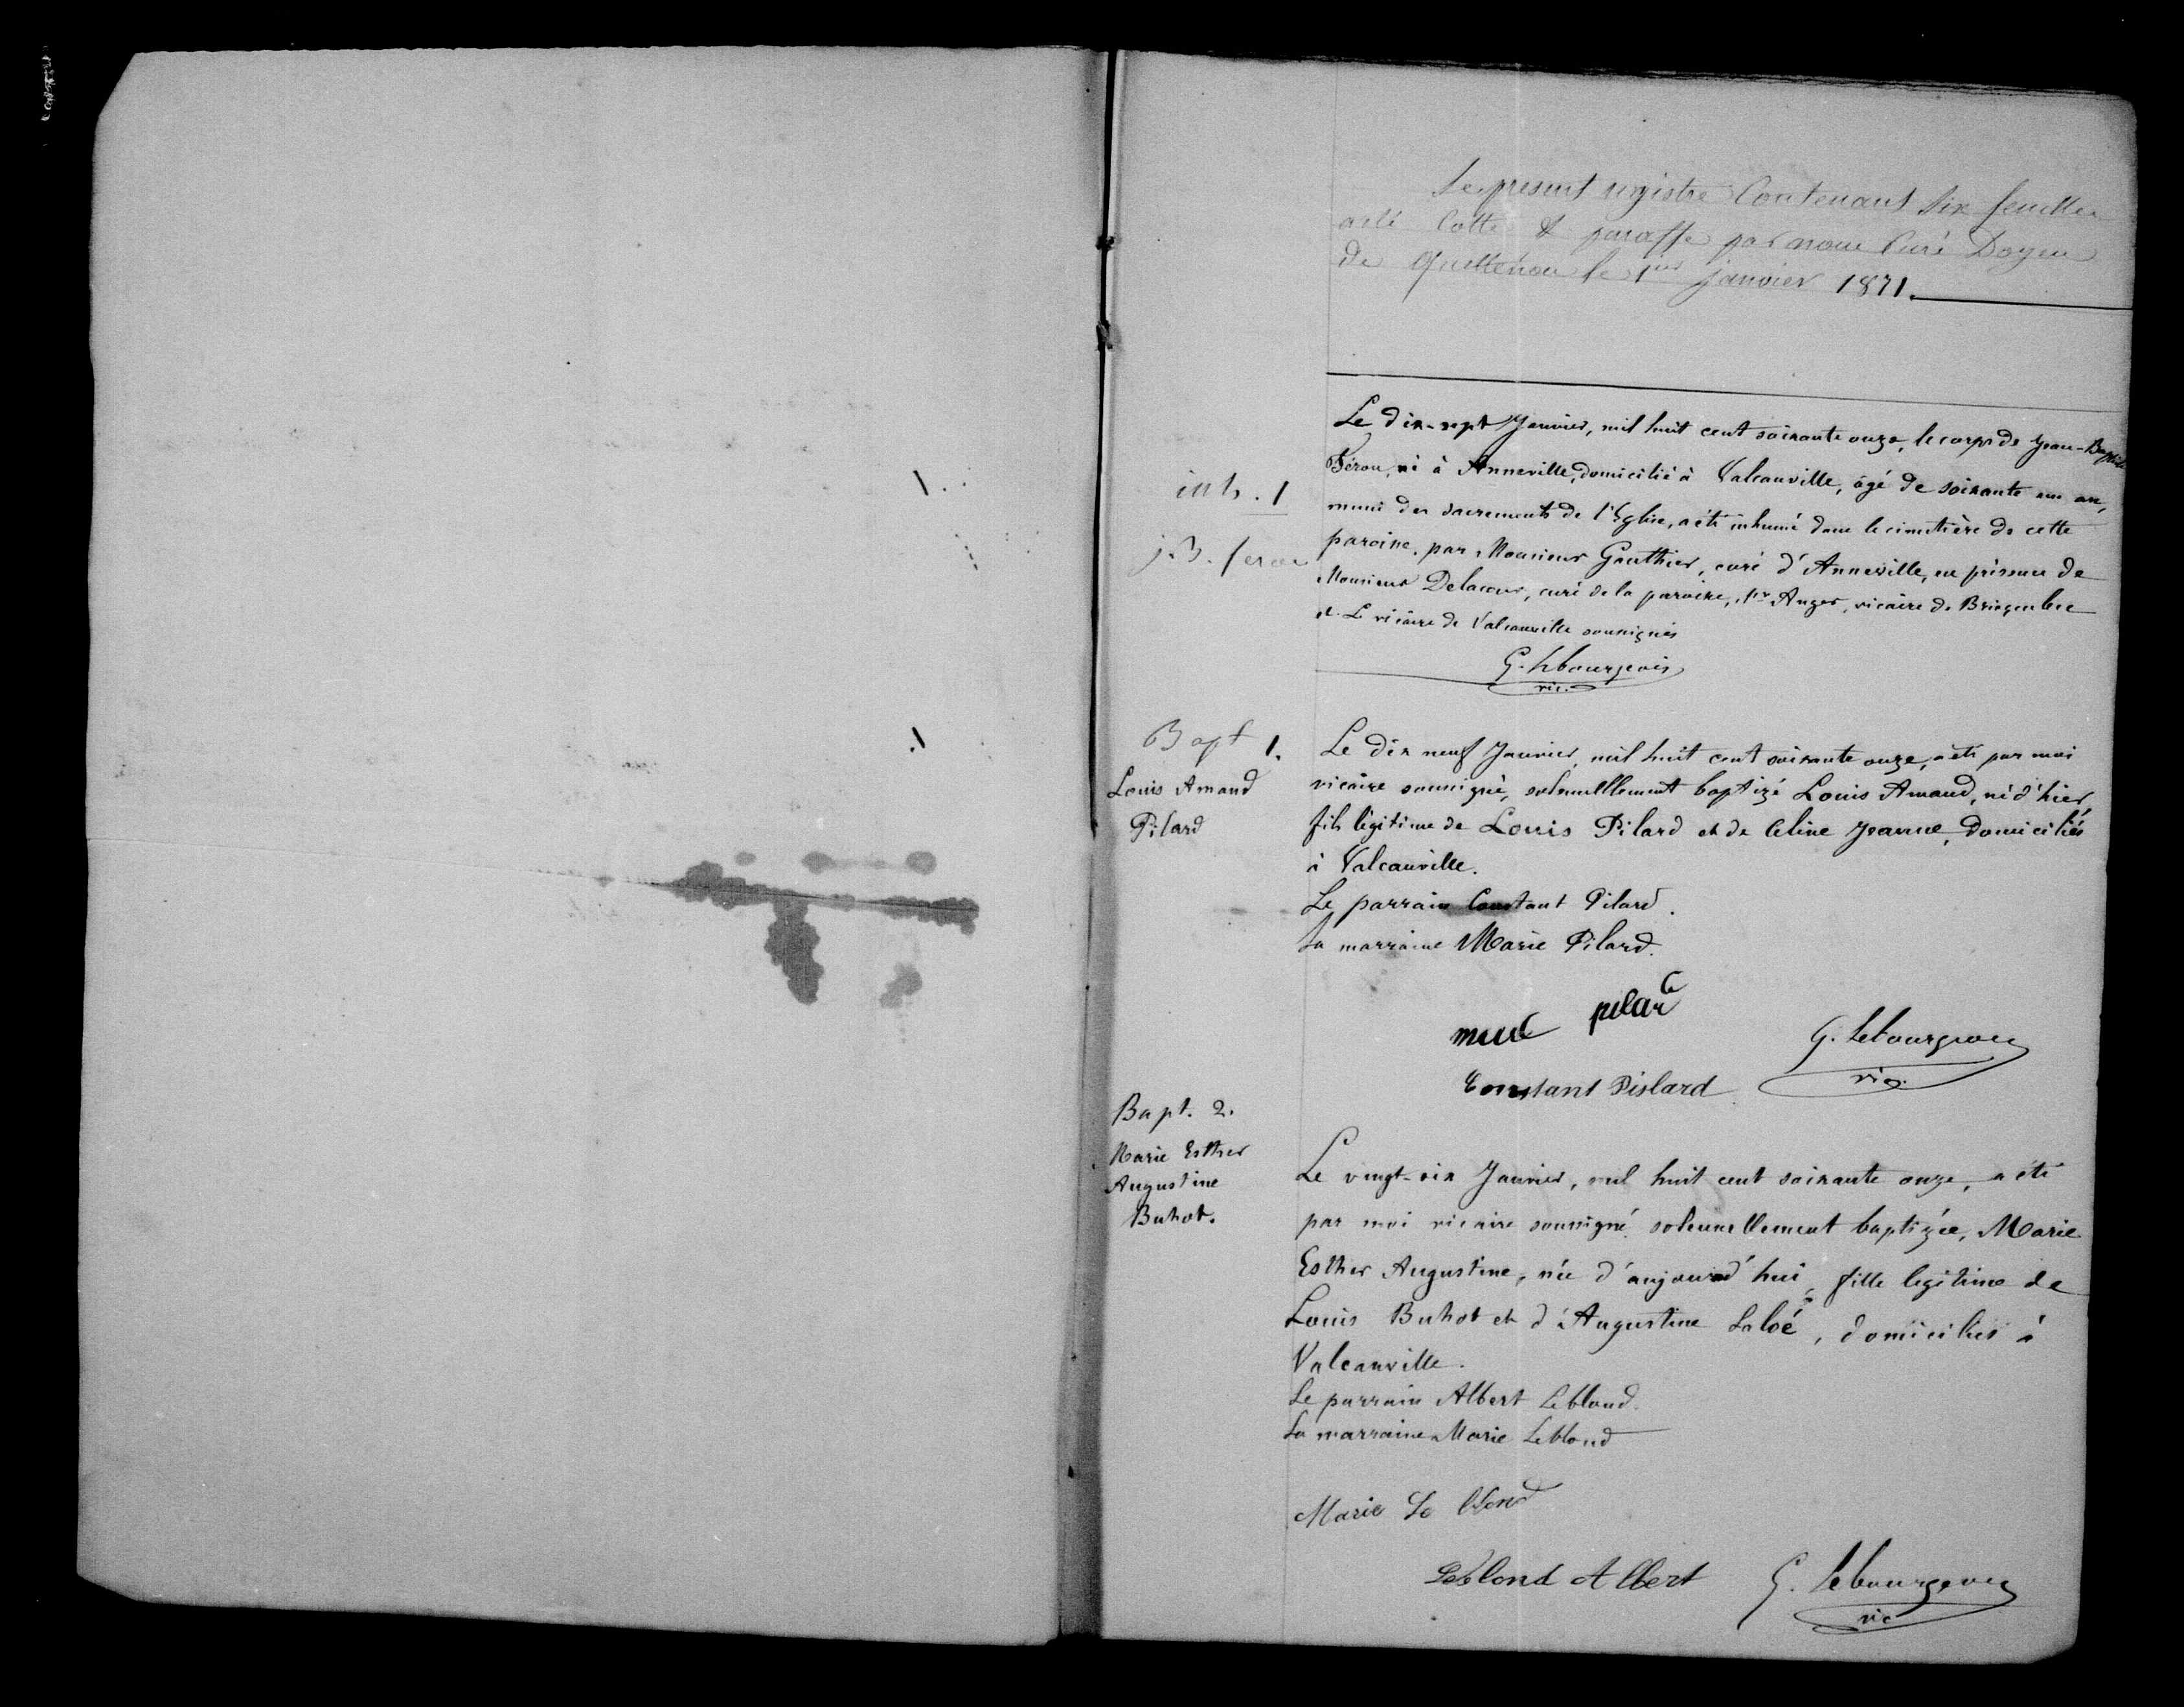 Le present registre Contenant Six feuilles
a été Cotté & paraffé par nous Curé Doyen
de Quettehou le 1er janvier 1871.
inh. 1
j. B. feron
Le dix-sept Janvier, mil huit cent soixante onze, le corps de Jean-Baptiste
Féron, né à Anneville, domicilié à Valcanville, âgé de soixante un an,
muni des sacrements de l'Eglise, a été inhumé dans le cimetière de cette
paroisse, par Monsieur Gauthier, curé d'Anneville, en présence de
Monsieur Delacour, curé de la paroisse, Mr Anger, vicaire de Bricquebec
et Le vicaire de Valcanville soussignés
G. Lebourgeois
vic.
Bapt 1.
Louis Amand
Pilard
Le dix neuf Janvier, mil huit cent soixante onze, a été par moi
vicaire soussigné, solennelllement baptizé Louis Amand, né d'hier,
fils légitime de Louis Pilard et de Celine Jeanne, domiciliés
à Valcanville.
Le parrain Constant Pilard.
La marraine Marie Pilard.
pilard
G. Lebourgeois
vic.
Constant Pislard
Bapt. 2.
Marie Esther
Augustine
Buhot.
Le vingt-six Janvier, mil huit cent soixante onze, a été
par moi vicaire soussigné solennellement baptizée, Marie
Esther Augustine, née d'aujourd'hui, fille legitime de
Louis Buhot et d'Augustine Laloé, domiciliés à
Valcanville.
Le parrain Albert Leblond.
La marraine Marie Leblond
Marie Le blond
Leblond Albert
G. Lebourgeois
vic